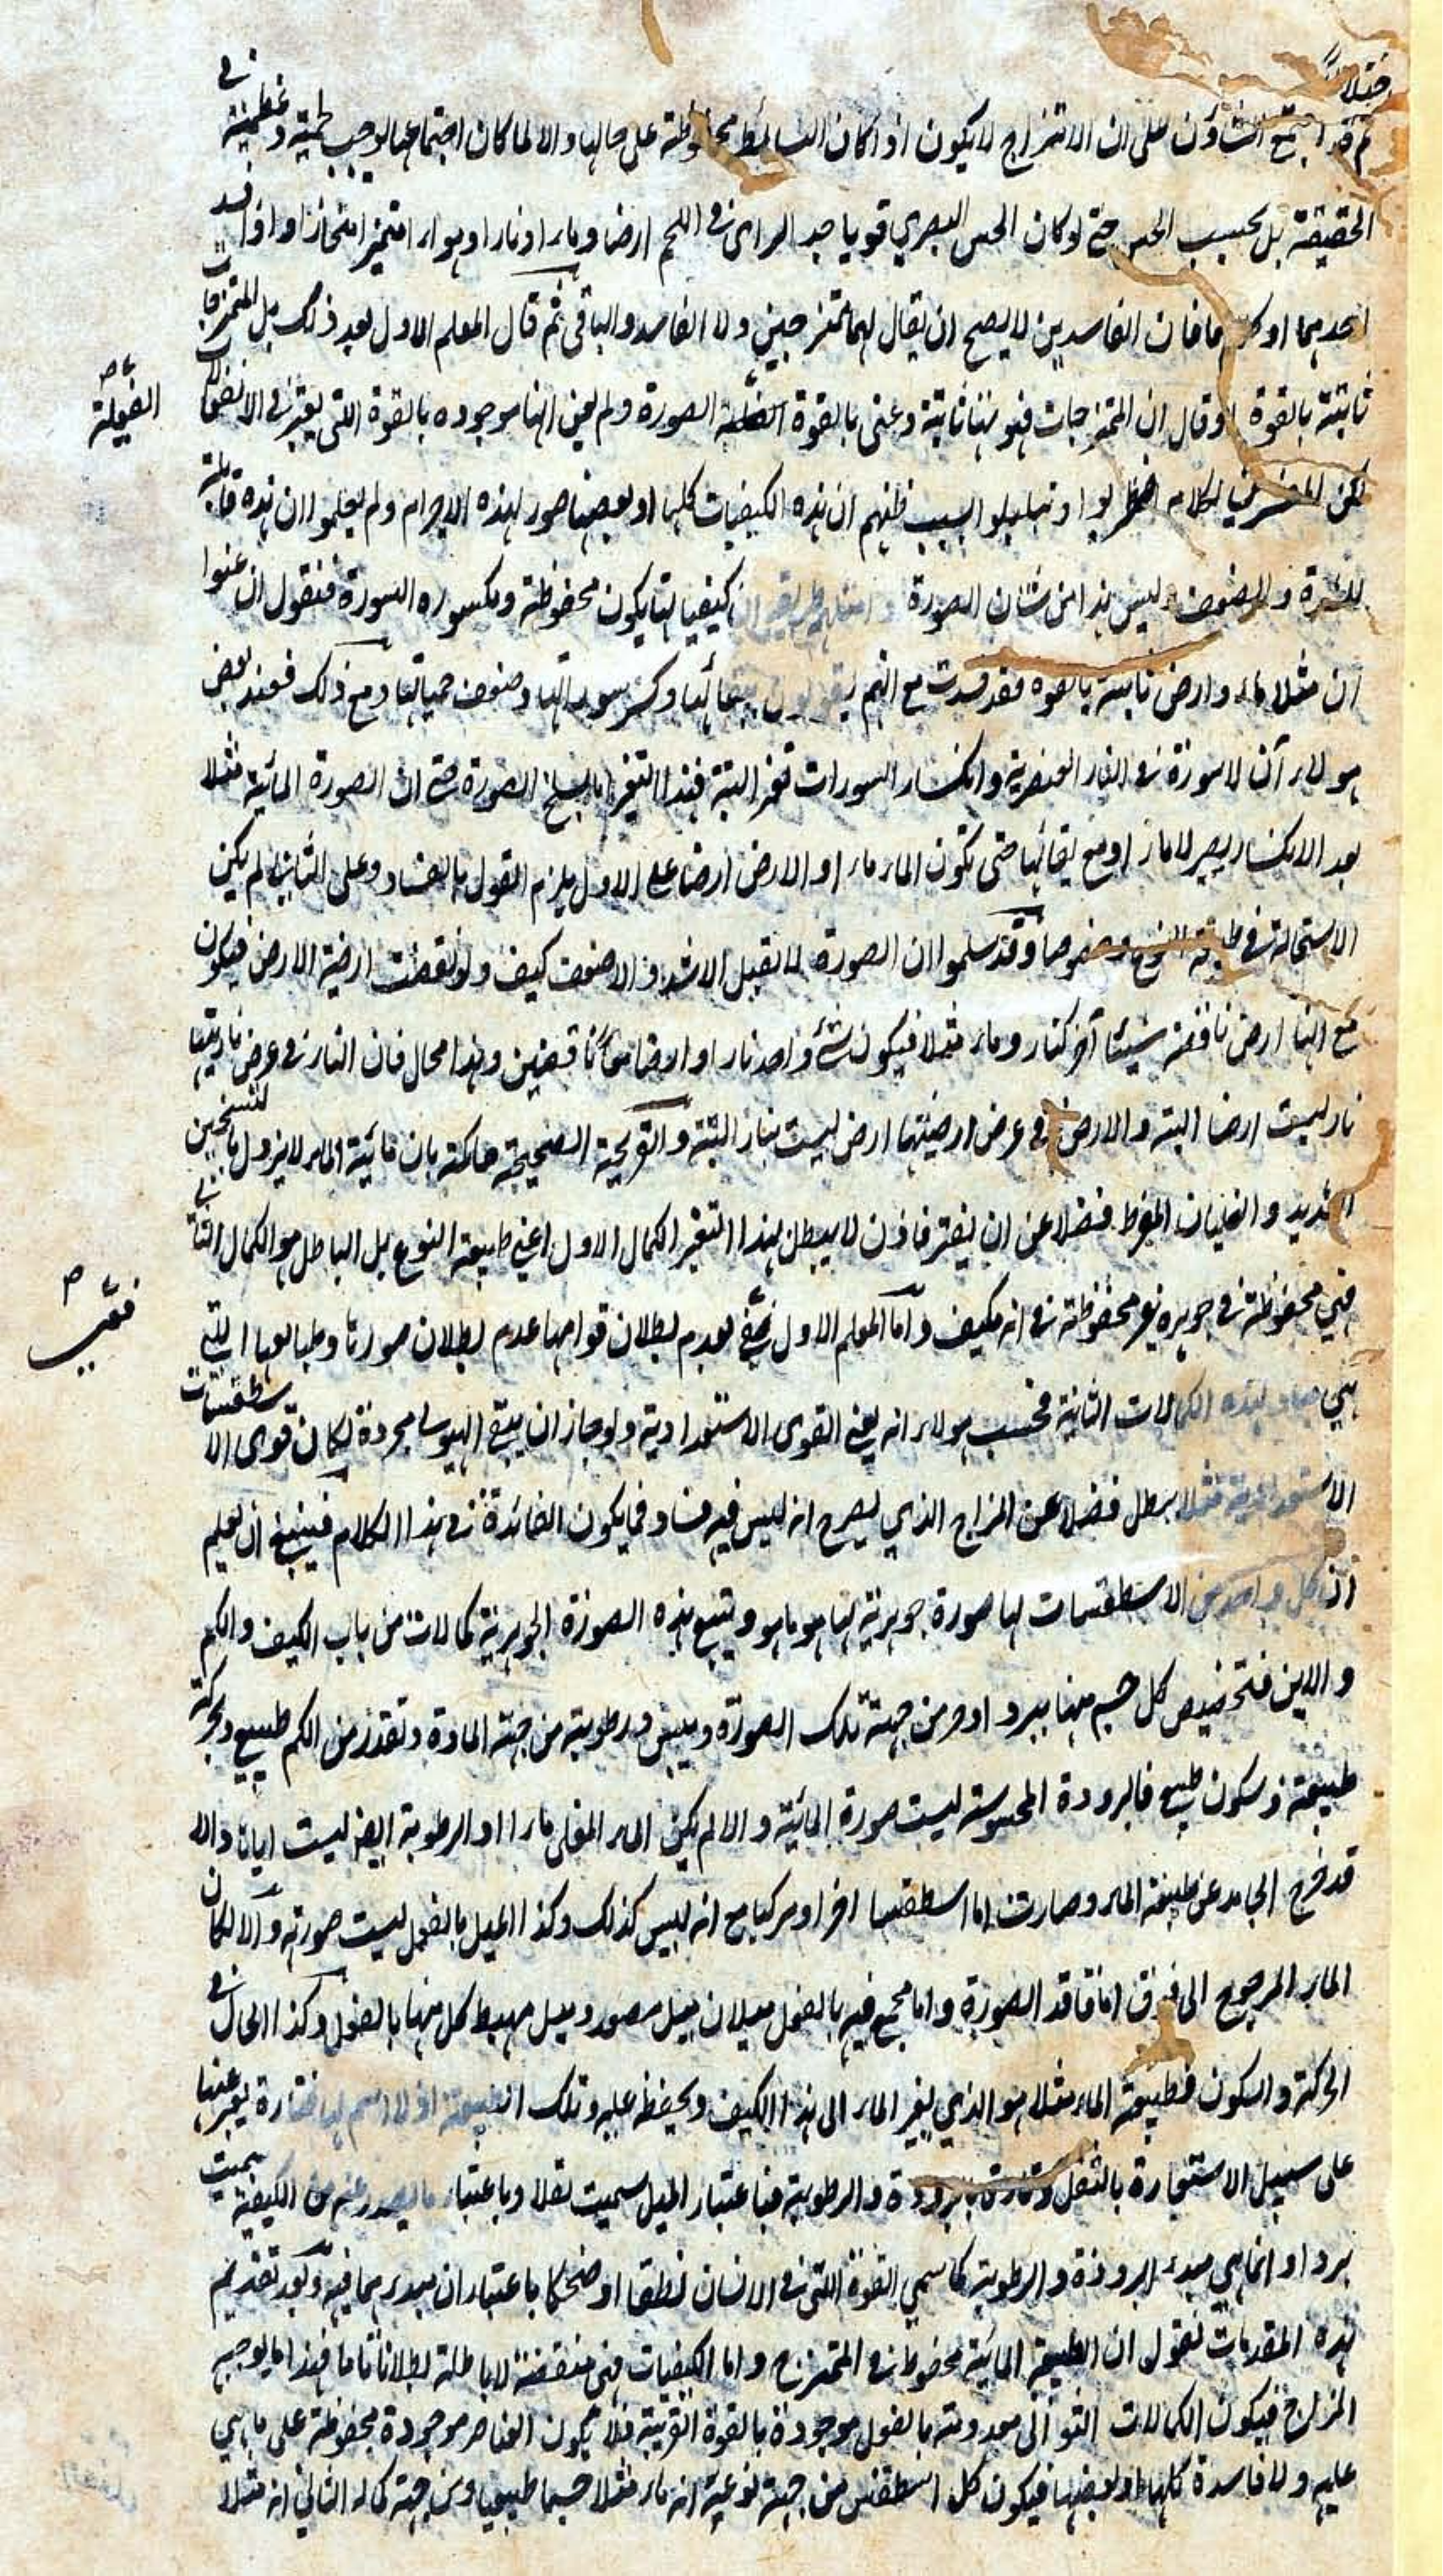 مختلفا
ثم قد اجمع المشاؤن على ان الامتزاج لا يكون اذا كان البسائط محفوظة على حالها والا لما كان اجتماعها يوجب لحمية وعظمية في
الحقيقة بل بحسب الحس حتى لو كان الحس البصري قويا جدا لراى في اللحم ارضا وماء ونارا وهواء متميز امتحازا واذا فسد
احدهما او كلاهما فان الفاسدين لا يصح ان يقال لهما ممتزجين ولا الفاسد والباقي ثم قال المعلم الاول بعد ذلك بل الممتزجات
ثابتة بالقوة وقال ان الممتزجات قوتها ثابتة وعنى بالقوة الفعلية الصورة ولم يعن انها موجوده بالقوة التي يعتبر في الانفعالات
الفعلية صح
لكن المفسرين لكلامه اضطربوا وتبلبلوا السبب ظنهم ان هذه الكيفيات كلها او بعضها صور لهذه الاجرام ولم يعلموا ان هذه قابلة
للشدة والضعف وليس هذا من شان الصورة كيفياتها يكون محفوظة ومكسوره السورة فنقول ان عنوا
ان مثلا ماء وارض ثابتة بالقوه فقد فسدت مع انهم يقولون ببقائها وكسر سوراتها وضعف حمياتها ومع ذلك فعند بعض
هولاء ان لا سورة في النار العنصرية وانكسار السورات تغير البتة فهذا التغير اما يسلخ الصورة حتى ان الصورة المائية مثلا
بعد الانكسار يصير لا ماء او مع بقائها حتى تكون الماء ماء او الارض ارضا على الاول يلزم القول بالفساد وعلى الثاني لم يكن
الاستحالة في طبيعة النوع وخصوصا وقد سلموا ان الصورة لا تقبل الاشد والاضعف كيف ولو نقصت ارضية الارض فيكون
مع انها ارض ناقصة شيئا آخر كنار وماء مثلا فيكون شيء واحد نار او ارضا معا ناقصين وهذا محال فان النار في عرض ناريتها
نار ليست ارضا البتة والارض في عرض ارضيتها ارض ليست بنار البتة والقريحة الصحيحة حاكمة بان مائية الماء لا يزول بالتسخين
الشديد والغليان المفرط فضلا عن ان يفتر فاذن لا يبطل بهذا التغير الكمال الاول اعني طبيعة النوع بل الباطل هو الكمال الثاني
فهي محفوظة في جوهره غير محفوظة في انه مكيف واما المعلم الاول فعنى بعدم بطلان قواها عدم بطلان صورها وطبايعها التي
فتعجب صح
هي مباد لهذه الكمالات الثانية فحسب هولاء انه يعنى القوى الاستعدادية ولو جاز ان يبقى الهيولى مجردة لكان قوى الاسطقسات
الاستعدادية مثلا لا يبطل فضلا عن المزاج الذي يصرح انه ليس فيه فساد فما يكون الفائدة في هذا الكلام فينبغي ان يعلم
ان كل واحد من الاسطقسات لها صورة جوهرية لها هو ما هو ويتبع هذه الصورة الجوهرية كمالات من باب الكيف والكم
والاين فتخصيص كل جسم منها ببرد او حر من جهة تلك الصورة ويبس ورطوبة من جهة المادة وتقدر من الكم طبيعي وبحركة
طبيعية وسكون طبيعي فالبرودة المحسوسة ليست صورة المائية والا لم يكن الماء المغلى ماء او الرطوبة ايضا ليست اياها والا
قد خرج الجامد عن طبيعة الماء وصارت اما اسطقسا اخر او مركبا مع انه ليس كذلك وكذا الميل بالفعل ليست صورته والا لكان
الماء المرجوع الى فوق اما فاقد الصورة واما مجمع فيه بالفعل ميلان ميل مصعد وميل مهبط كل منها بالفعل وكذا الحال في
الحركة والسكون فطبيعة الماء مثلا هو الذي يغير الماء الى هذا الكيف ويحفظ عليه وتلك الطبيعة اذ لا اسم لها فتارة يعبر عنها
على سبيل الاستعارة بالثقل وتارة بالبرودة والرطوبة فباعتبار الميل سميت ثقلا وباعتبار ما يصدر عنه من الكيفية سميت
بردا وانما هي مبدء البرودة والرطوبة كما سمي القوة التي في الانسان نطقا او ضحكا باعتبار ان مبدء بما فيه وبعد تقديم
هذه المقدمات نقول ان الطبيعة المائية محفوظ في الممتزج واما الكيفيات فهي منتقصة لا باطلة بطلانا تاما فهذا ما يوجبه
المزاج فيكون الكمالات الثواني معدومة بالفعل موجودة بالقوة القريبة فلا يكون العناصر موجودة محفوظة على ما هي
عليه ولا فاسدة كلها او بعضها فيكون كل اسطقس من جهة نوعية انه ماء مثلا جسما طبيعيا ومن جهة كماله الثاني انه مثلا